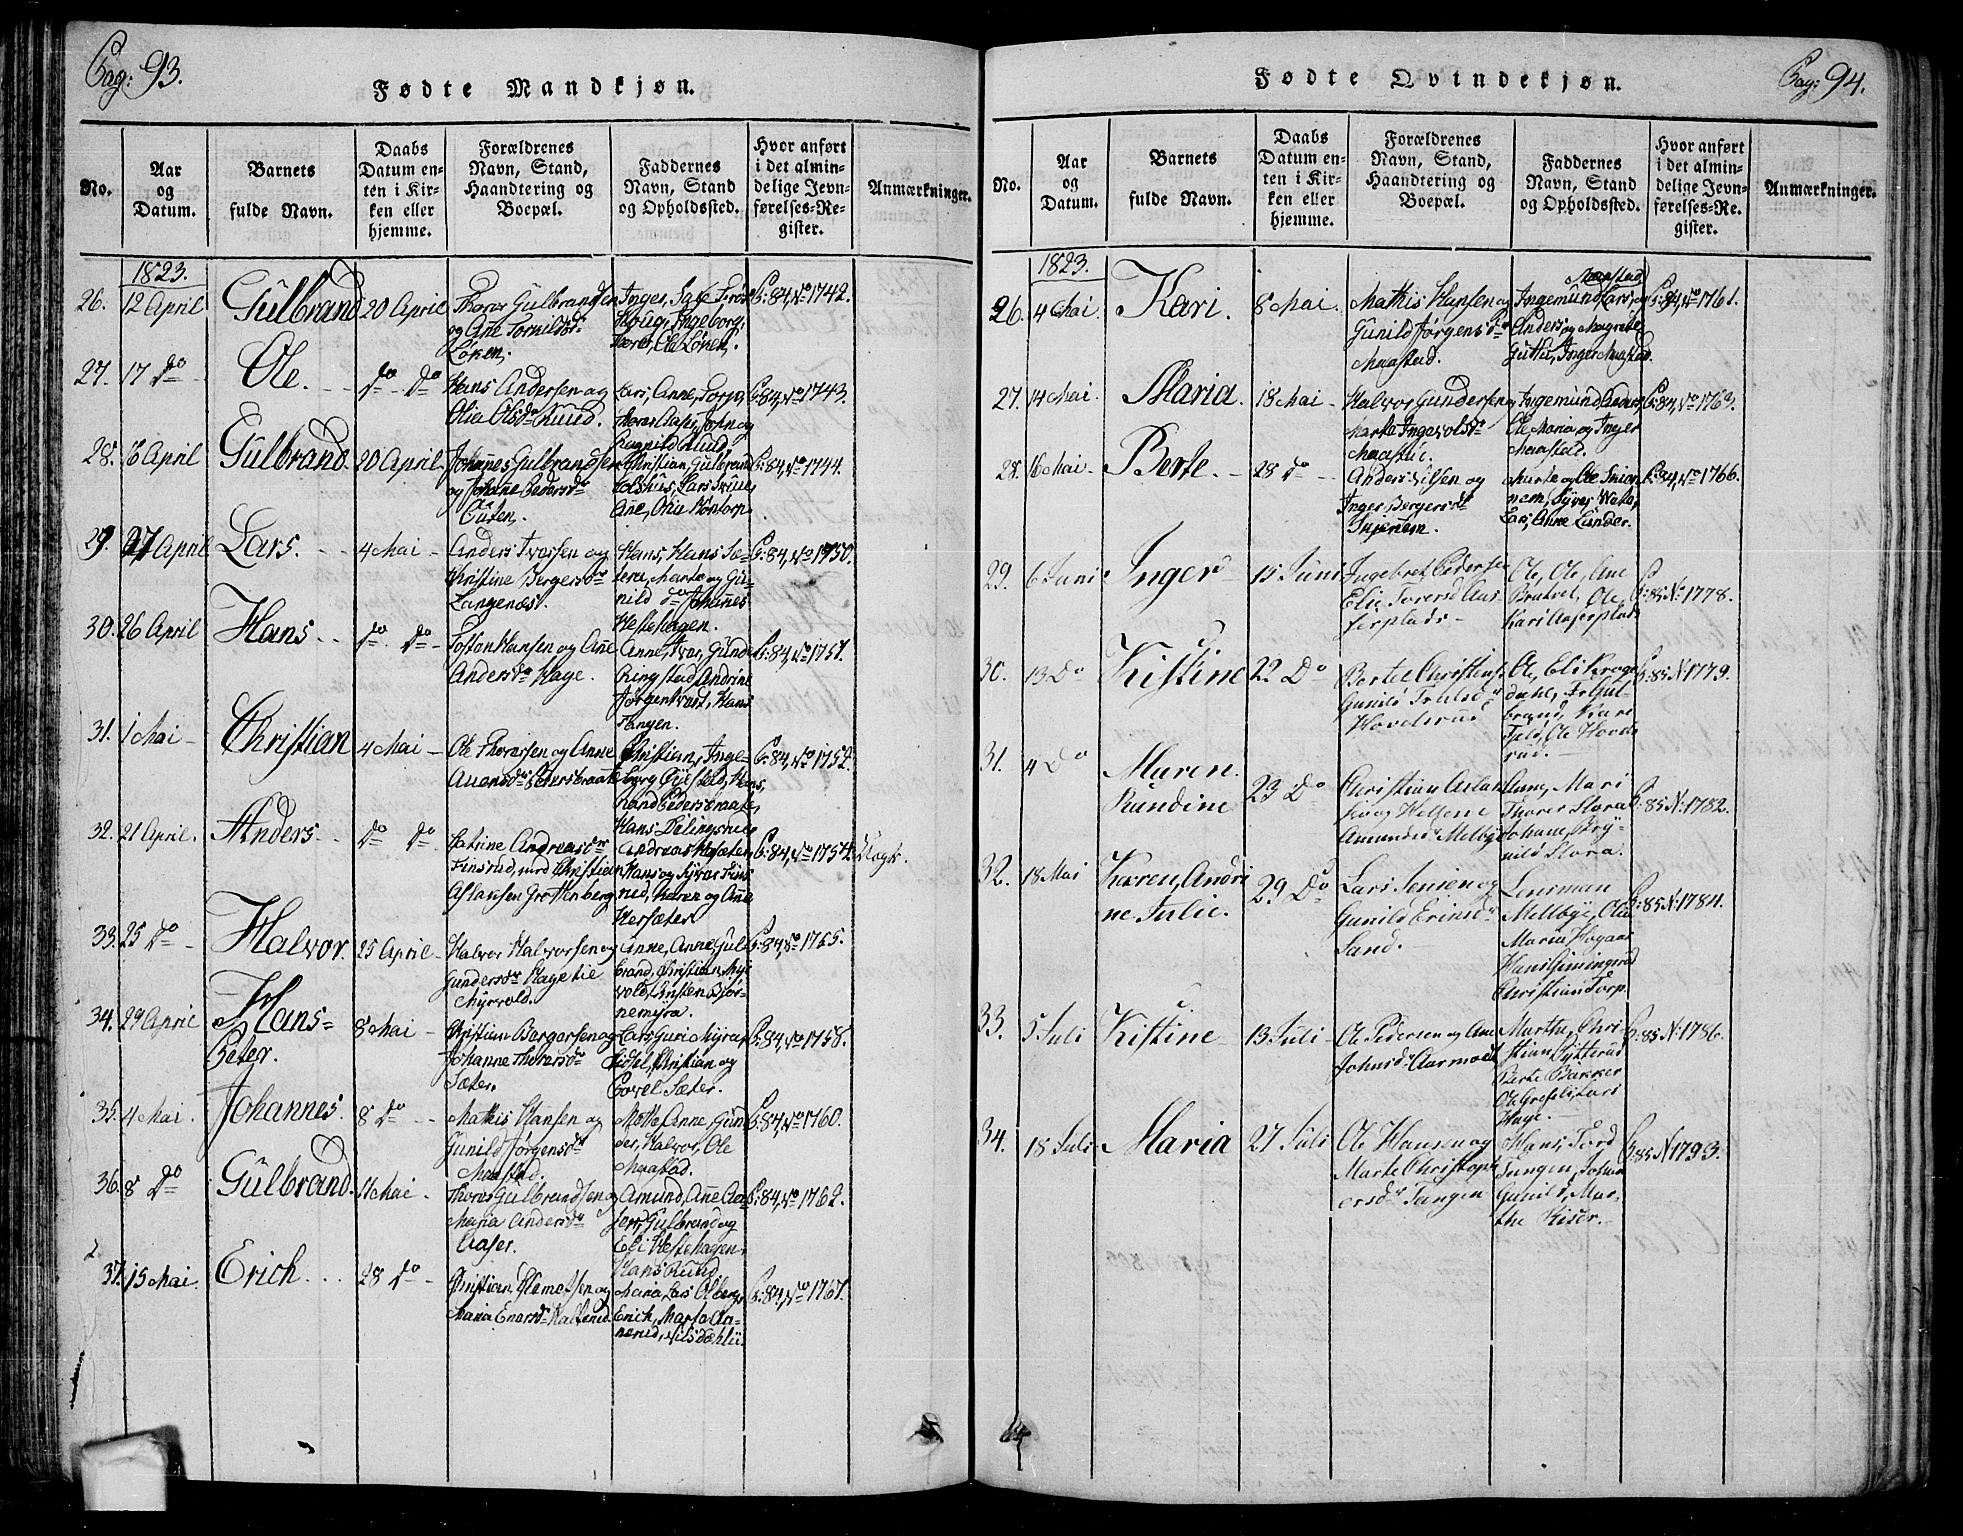 Pag: 93.
Fødte Mandkjøn.
No.
Aar
og
Datum.
Barnets
fulde Navn.
Daabs
Datum en-
ten i Kir-
ken eller
hjemme.
Forældrenes
Navn, Stand,
Haandtering og
Boepæl.
Faddernes
Navn, Stand
og Opholdssted.
Hvor anført
i det almin-
delige Jevn-
førelses-Re-
gister.
Anmærkninger.
1823.
26. 12 April Gulbrand 20 April Thorer Gulbrandsen
og
Løken.
Ole Løken.
P:84, No 1742.
27. 17 do Ole. do do Hans Andersen og
Olia Olsdr Ruud.
Lars, Anne, Torp,
John og
Ragnild Ruud.
P:84, No 1743.
28. 16 April Gulbrand 20 April. Johannes Gulbrandsen
og Johane Pedersdr
Christian, Gulbrand
Lars
P:84, No 1744.
29. 27 April Lars. 4 Mai Anders Iversen og
Christine Bergersdr
Langenæs.
Hans, Hans Sæ-
tere, Marte og Gu-
nild do Johanes
Hestehagen.
P:84, No 1750.
30. 26 April Hans do do Hansen og Ane
Andersdr Hage.
Anne, Ivar, Gunder
Ringstad, Andrine
Jørgen Hans
Tangen.
P:84, No 1751.
31. 1 Mai Christian 4 Mai Ole Thorersen og Anne
Pedersbraate
Christian, Inge-
borg
Pedersbraate,
P:84, No 1752.
32. 21 April. Anders do do Andreasdr
Finsrud, med Christian
Aslaksen Grottenberg
Hans
Andreas Hersæter,
Hans og Syver Fins-
rud, Karen og Ane
Hersæter.
P:84, No 1754. Uægte.
33. 25 do Halvor. 25 April Halvor Halvorsen og
Gundersdr Hage
Myrvold.
Anne, Anne, Gul-
brand, Christian Myr-
vold, Bjør-
nemyra.
P:84, No 1755.
34. 29 April Hans
Peter. 8 Mai Christian Bergersen og
Johanne Thorersdr
Sæter.
Lars, Guri Myra,
Sidsel, Christian og
Povel Sæter.
P:84, No 1758.
35. 4 Mai. Johannes. 8 do Mathis Hansen og
Gunild Jørgensdr
Maastad.
Anne, Gun-
der, Halvor, Ole
Maastad.
P:84, No 1760.
36. 8 do Gulbrand. 11 Mai Thorer Gulbrandsen og
Maria Andersdr
Aaser.
Amund, Ane Aa-
ser, Gulbrand og
Eli Hestehagen.
P:84, No 1762.
37. 15 Mai. Erich 28 do Christian Clemetsen og
Maria
Hans Ruud,
Maria, Lars Olberg,
Erich, Marte Aa-
nerud, Nils Dæhlii.
P:84, No 1767.
Pag: 94.
Fødte Qvindekjøn.
No.
Aar
og
Datum.
Barnets
fulde Navn.
Daabs
Datum en-
ten i Kir-
ken eller
hjemme.
Forældrenes
Navn, Stand,
Haandtering og
Boepæl.
Faddernes
Navn, Stand
og Opholdssted.
Hvor anført
i det almin-
delige Jevn-
førelses-Re.
gister.
Anmærkninger.
1823.
26. 4 Mai Kari. 8 Mai. Mathis Hansen og
Gunild Jørgensdr
Maastad.
Maastad
Ingemund, Lars, og
Anders og Magrete
Guttu, Inger Maastad.
P:84, No 1761.
27. 14 Mai Maria. 18 Mai Halvor Gundersen og
Marte Ingevoldsdr
Maastad.
Ingemund
Ole, Maria og Inger
Maastad.
P:84, No 1763.
28. 16 Mai Berte. 28 do Anders Nilsen og
Inger Bergersdr
Marte og Ole
Syver
Lars, Anne Lunder.
P:84, No 1766.
29. 6 Juni Inger 15 Juni Ingebret Pedersen
Elie Iversd Aas-
serplads
Ole, Ole, Ane
Ole
Kari Aaserplads
P:85 No 1778.
30. 13 Do Kistine 22 Do Bertel Christens
Gunild Trulsdr
Hovelsrud
Ole, Eli Kroge-
dahl, Gul-
brand, Kari
Ole Hovels-
rud.
P:85 N 1779.
31. 4 Do Maren
Rundine 23 Do Christian Aslak-
sen og Helene
Amundsdr Melbye
Anne, Mari
Thorer Stora
Johane, Bry-
nild Stora.
P:85 N. 1782.
32. 18 Mai Karen, Andri
ne Julie. 29 Do Lars Jensen og
Gunild Ericsdr
Sand.
Lensman
Mellbye, Ole
Maria
Hans
Christian Torp.
P:85 N. 1784.
33. 5 Juli Kistine 13 Juli Ole Pedersen og Ane
Johnsdr Aarmoet
Marthe, Chri-
stian Sytterud
Berte Bakker
Ole Lars
Hage.
P:85 N. 1786.
34. 18 Juli Maria 27 Juli Ole Hansen og
Marte Christoph
ersdr Tangen
Hans, Tord
Tangen, Johan
Gunild, Mar-
the Kiser.
P:85 N 1793.